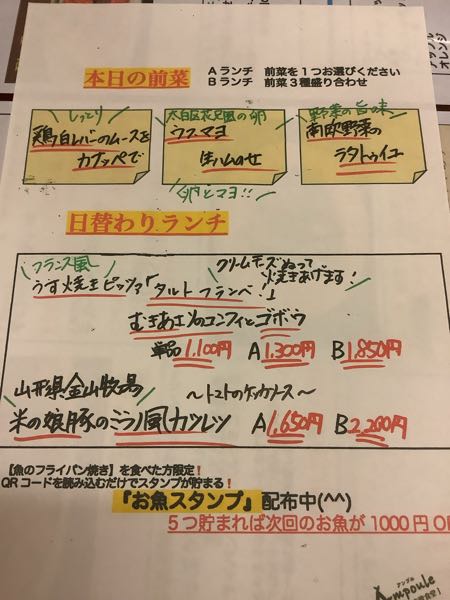 本日の前菜
Aランチ 前菜を1つお選びください
Bランチ 前菜3種盛り合わせ
しっとり
鶏白レバーのムースを
カナッペで
太白区花兄園の卵
ウフマヨ
生ハムのせ
卵とマヨ!!
野菜の旨味
南欧野菜の
ラタトゥイユ
日替わりランチ
フランス風
うす焼きピッツァ「タルトフランベ!」
クリームチーズぬって
焼きあげます!
むきあさりのコンフィとゴボウ
単品1,100円 A1,300円 B1,850円
山形県金山牧場の
〜トマトのケッカソース〜
米の娘豚のミラノ風カツレツ A1,650円 B2,200円
【魚のフライパン焼き】を食べた方限定!
QRコードを読み込むだけでスタンプが貯まる!
『お魚スタンプ』配布中(^^)
5つ貯まれば次回のお魚が1000円O
アンプル
Ampoule